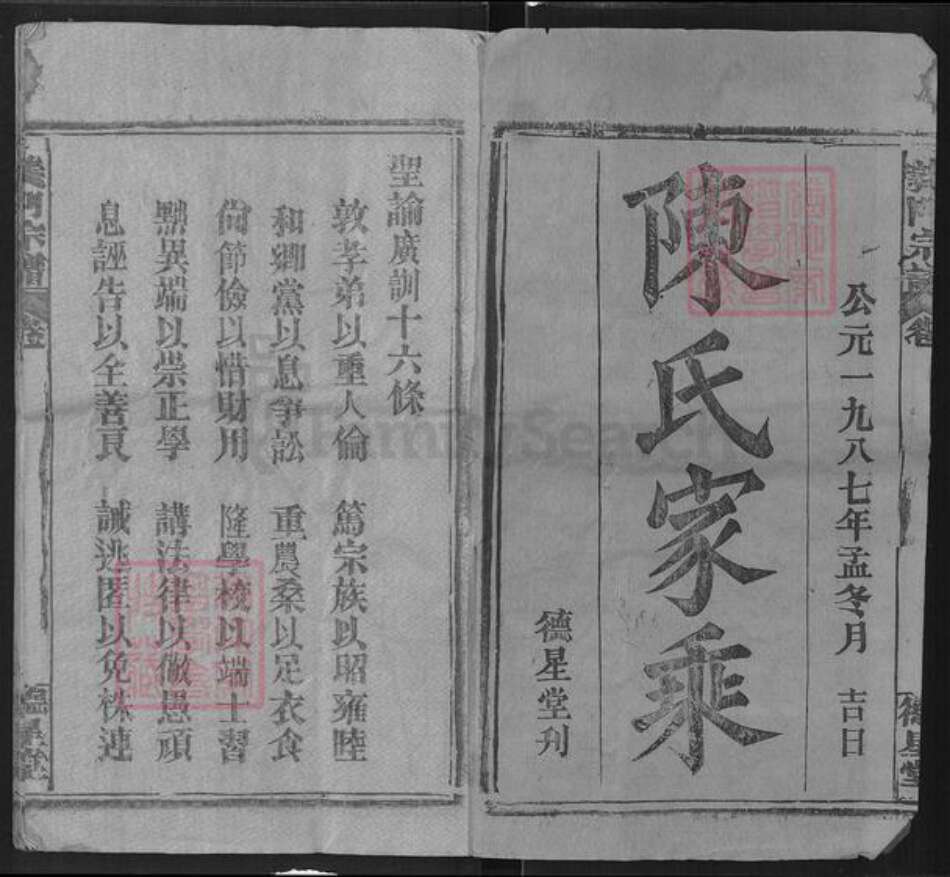 公元一九八七年孟冬月 吉日
陳氏家乘
德星堂刋
德星堂
聖諭廣訓十六條
敦孝弟以重人倫 篤宗族以昭雍睦
和鄉黨以息爭訟 重農桑以足衣食
尙節儉以惜財用 隆學校以端士習
黜異端以崇正學 講法律以儆愚頑
息誣告以全善良 誡逃匿以免株連
義門宗譜 卷
德星堂
FamilySearch